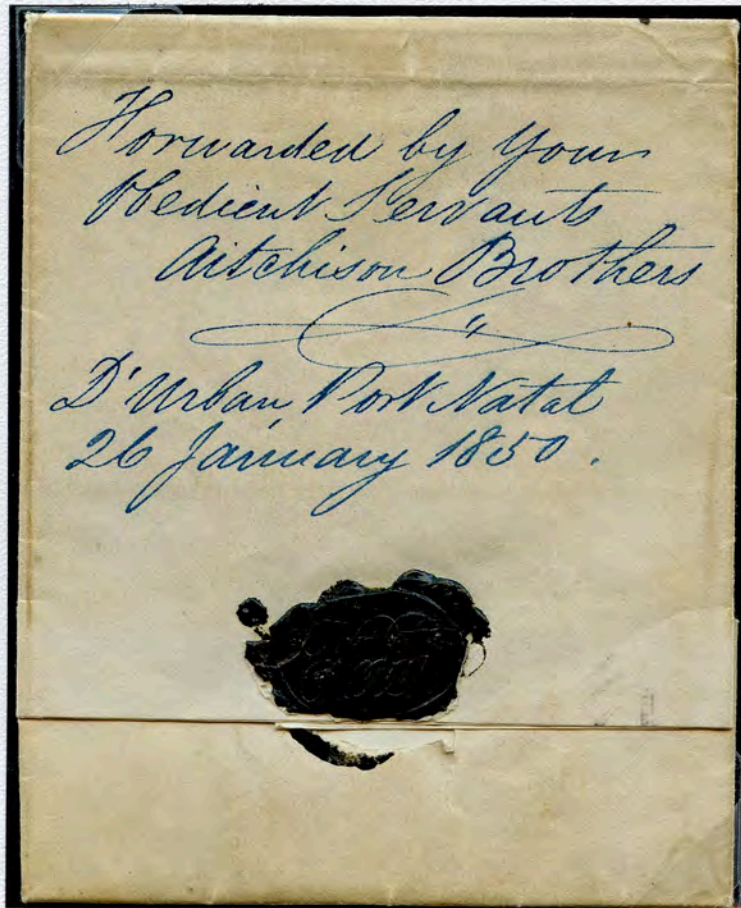 Forwarded by Your
Obedient Servants
Aitchison Brothers
D'Urban, Port Natal
26 January 1850.